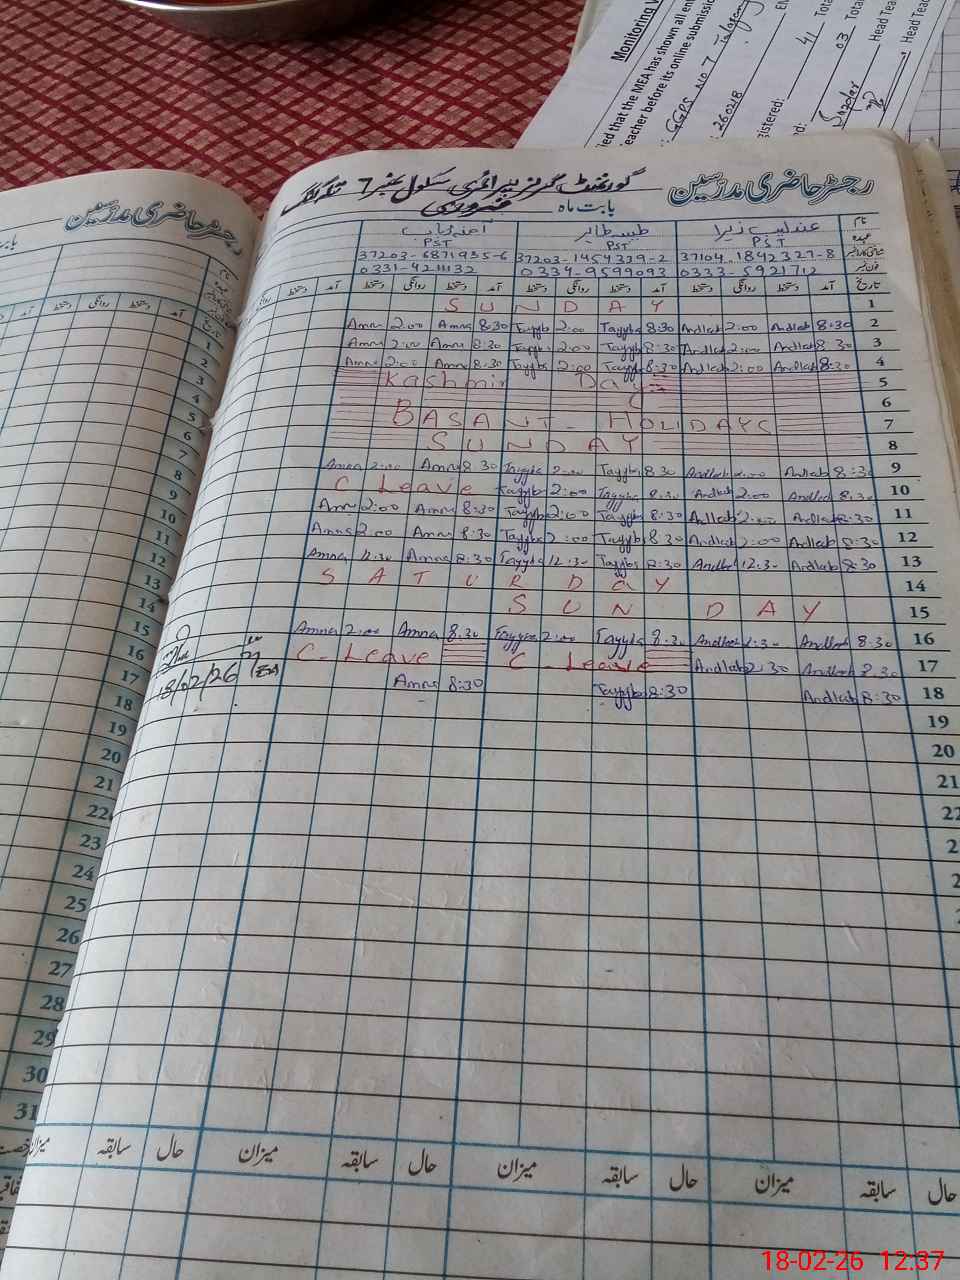 Monitoring V
fied that the MEA has shown all en
teacher before its online submission
GGPS NO 7 Talagang
260218
gistered: 41
Total
03
Head Tea
Head Tea
رجسٹر حاضری مدرسین
گورنمنٹ گرلز پرائمری سکول نمبر 7 تلہ گنگ
بابت ماہ فروری
رجسٹر حاضری مدرسین
نام عندلیب زہرا طیبہ طاہر
عہدہ PST PST PST
37104-1842327-8 37203-1454329-2 37203-6871935-6
فون نمبر 0333-5921712 0334-9599093 0331-4211132
تاریخ آمد دستخط روانگی دستخط آمد دستخط روانگی دستخط آمد دستخط روانگی دستخط آمد دستخط
SUNDAY 1
Amna 2:00 Amna 8:30 Tayyb 2:00 Tayyb 8:30 Andlab 2:00 Andlab 8:30 2
Amna 2:00 Amna 8:30 Tayyb 2:00 Tayyb 8:30 Andlab 2:00 Andlab 8:30 3
Amna 2:00 Amna 8:30 Tayyb 2:00 Tayyb 8:30 Andlab 2:00 Andlab 8:30 4
Kashmir Day 5
6
BASANT - HOLIDAYS 7
SUNDAY 8
Amna 2:00 Amna 8:30 Tayyba 2:00 Tayyb 8:30 Andlab 2:00 Andlab 8:30 9
C Leave Tayyb 2:00 Tayyba 8:30 Andlab 2:00 Andlab 8:30 10
Amna 2:00 Amna 8:30 Tayyb 2:00 Tayyb 8:30 Andlab 2:00 Andlab 8:30 11
Amna 2:00 Amna 8:30 Tayyba 2:00 Tayyb 8:30 Andlab 2:00 Andlab 8:30 12
Amna 12:30 Amna 8:30 Tayyba 12:30 Tayyba 8:30 Andlab 12:30 Andlab 8:30 13
SATURDAY 14
SUNDAY 15
Amna 2:00 Amna 8:30 Tayyba 2:00 Tayyba 8:30 Andlab 2:30 Andlab 8:30 16
C-Leave C-Leave Andlab 2:30 Andlab 8:30 17
18/02/26
Amna 8:30 Tayyb 8:30 Andlab 8:30 18
19
20
21
22
حال سابقہ میزان حال سابقہ میزان حال سابقہ میزان حال سابقہ
1
2
3
4
5
6
7
8
9
10
11
12
13
14
15
16
17
18
19
20
21
22
23
24
25
26
27
28
29
30
31
18-02-26 12:37